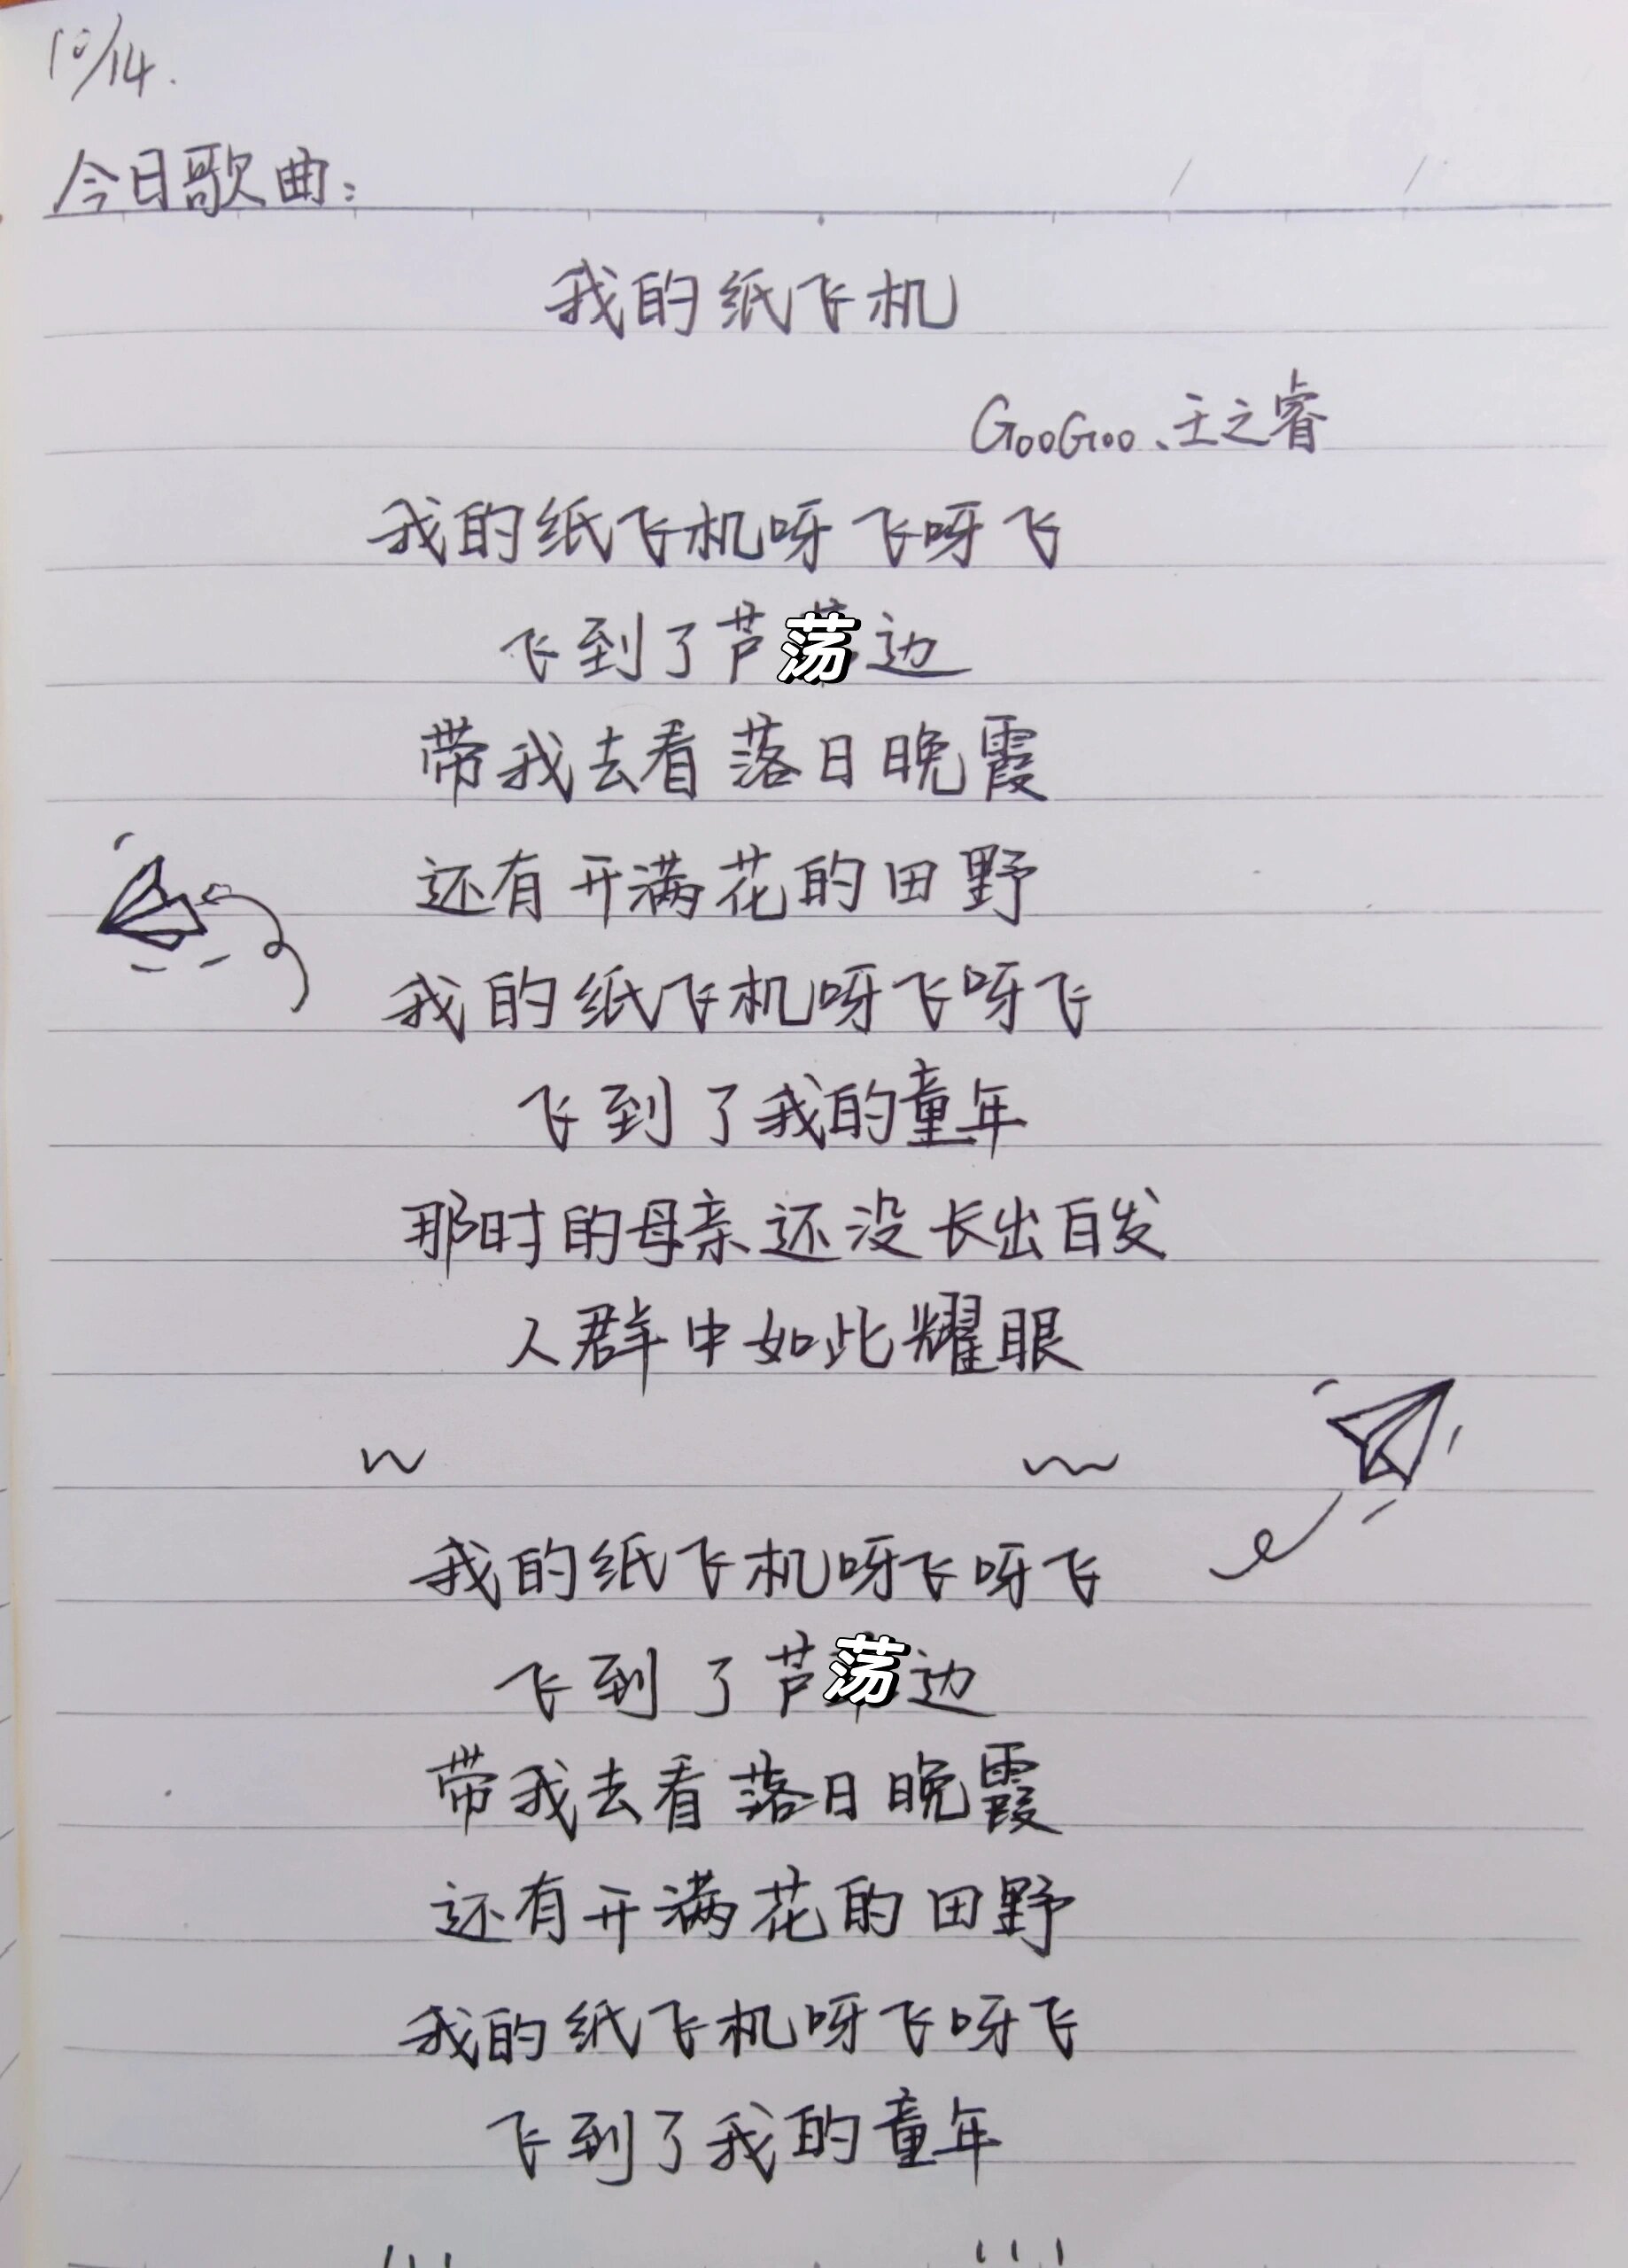 10/14.
今日歌曲:
我的纸飞机
GooGoo、王之睿
我的纸飞机呀飞呀飞
飞到了芦荡边
带我去看落日晚霞
还有开满花的田野
我的纸飞机呀飞呀飞
飞到了我的童年
那时的母亲还没长出白发
人群中如此耀眼
我的纸飞机呀飞呀飞
飞到了芦荡边
带我去看落日晚霞
还有开满花的田野
我的纸飞机呀飞呀飞
飞到了我的童年